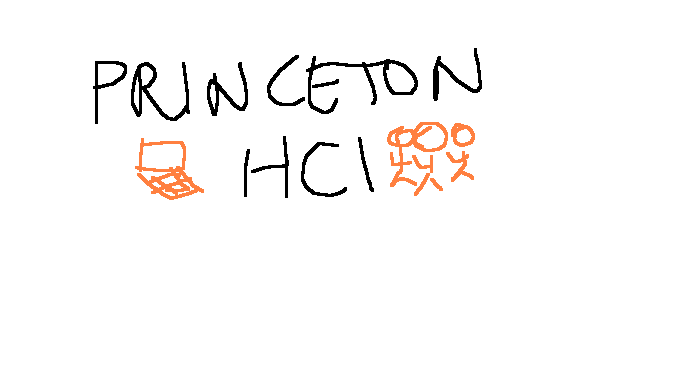 PRINCETON
HCI